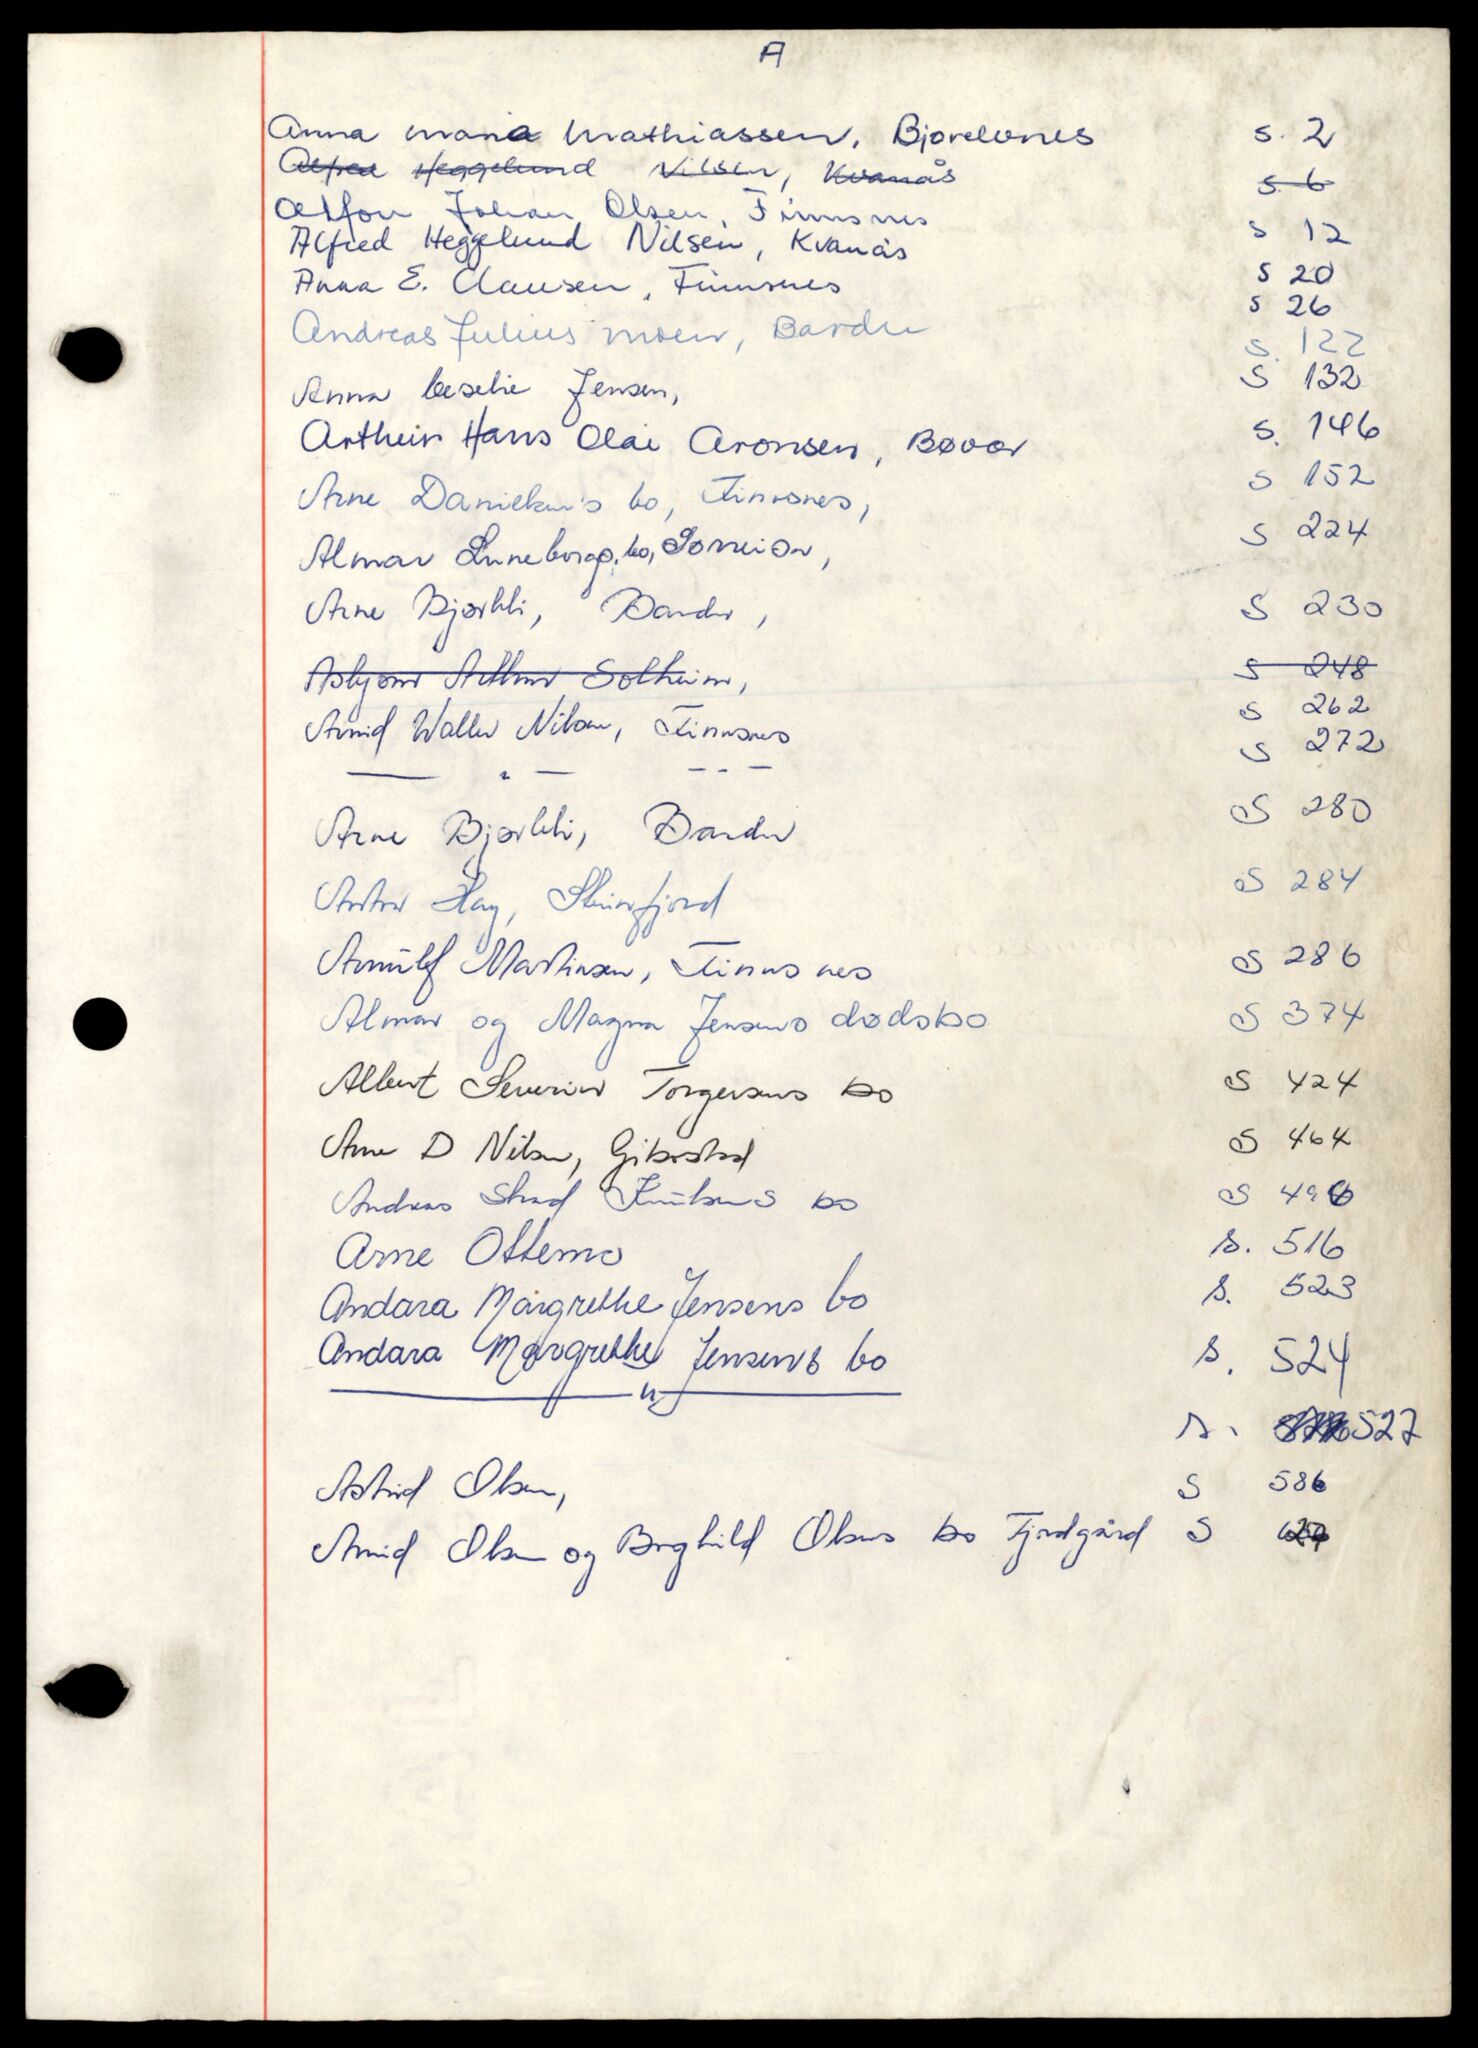 A
Anna Maria Mathiassen, Bjorelvnes s. 2
Alfred Heggelund Nilsen, Kvanås s. 6
Alfon Johan Olsen, Finnsnes s 12
Alfred Heggelund Nilsen, Kvanås s 20
Anna E. Clausen, Finnsnes s 26
Andreas Julius Moen, Bardu s. 122
Anna Jensen, s 132
Arthur Hans Olai Aronsen, Bøvær s. 146
Arne Danielsen's bo, Finnsnes, s 152
Almar Luneborg, bo, Sørreisa, s 224
Arne Bjørkli, Bardu, s 230
Asbjørn Arthur Solheim, s 248
Arvid Walter Nilsen, Finnsnes s 262
— " — - - - s 272
Arne Bjørkli, Bardu s 280
Hay, Steinfjord s 284
Arnulf Martinsen, Finnsnes s 286
Almar og Magna Jensens dødsbo s 374
Albert Severin Torgersens bo s 424
Arne D Nilsen, Gibostad s 464
Andreas Knutsens bo s
Arne Ottemo s. 516
Andara Margrethe Jensens bo s. 523
Andara Margrethe Jensens bo s. 524
— " — s. 527
Astrid Olsen, s 586
Arvid Olsen og Borghild Olsens bo Fjordgård s